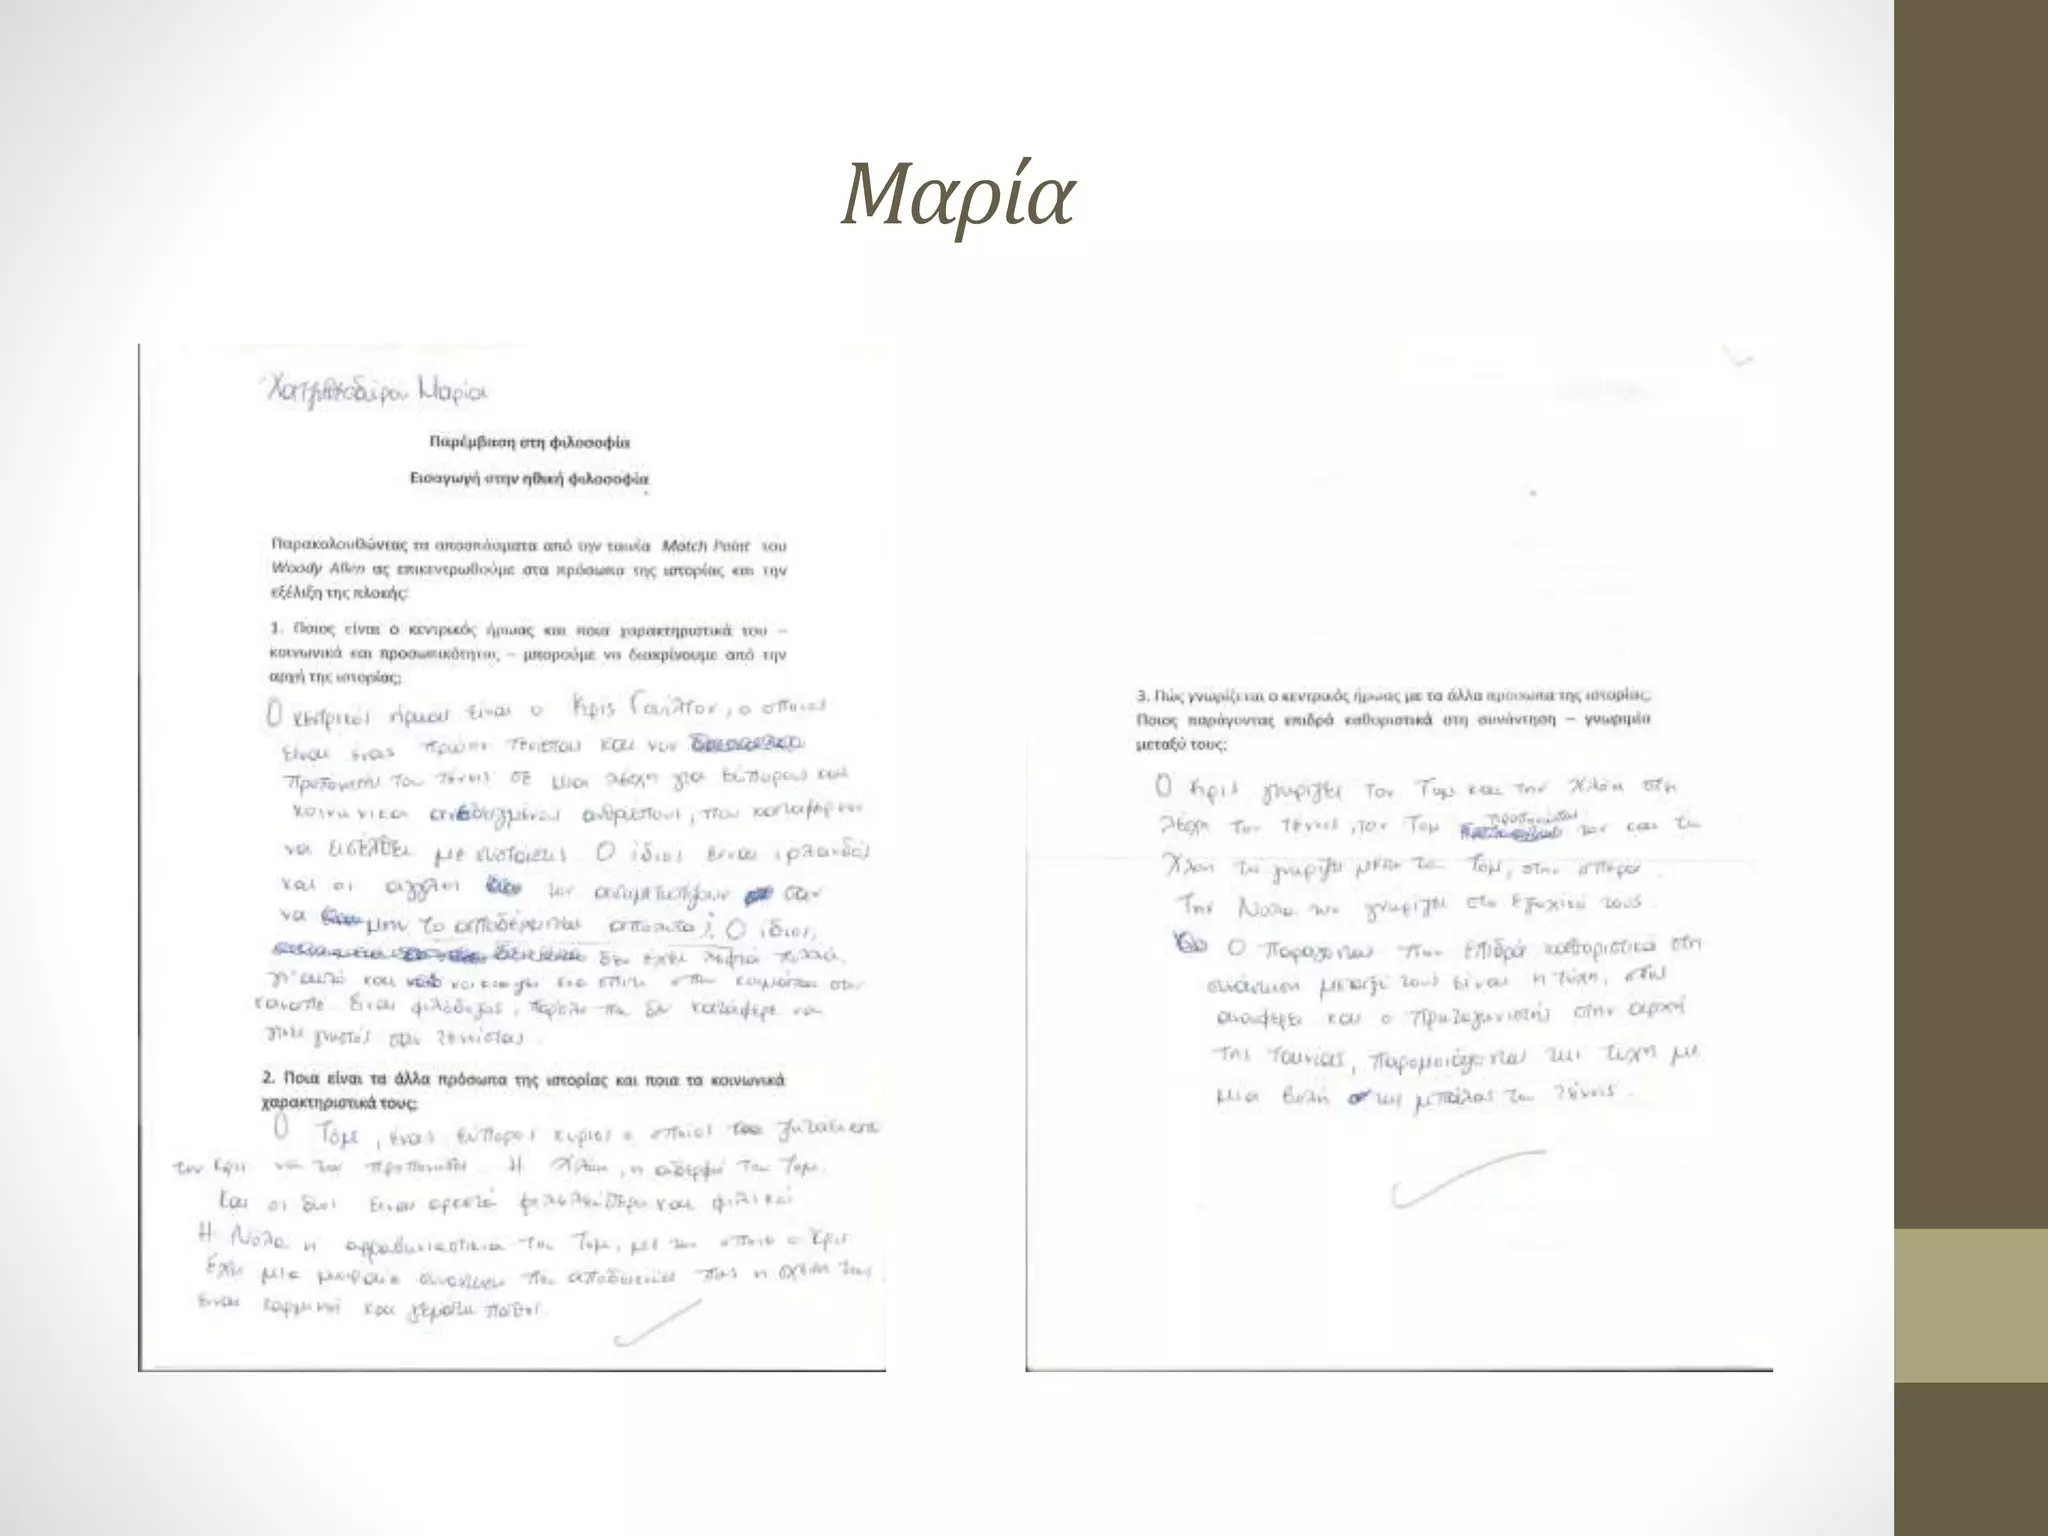 Μαρία
Μαρία
Παρέμβαση στη φιλοσοφία
Εισαγωγή στην ηθική φιλοσοφία
Παρακολουθώντας τα αποσπάσματα από την ταινία Match Point του
Woody Allen ας επικεντρωθούμε στα πρόσωπα της ιστορίας και την
εξέλιξη της πλοκής:
1. Ποιος είναι ο κεντρικός ήρωας και ποια χαρακτηριστικά του –
κοινωνικά και προσωπικότητας – μπορούμε να διακρίνουμε από την
αρχή της ιστορίας;
Ο κεντρικός ήρωας είναι ο Κρις Γουίλτον, ο οποίος
είναι ένας πρώην τενίστας και νυν
προπονητής του τένις σε μια λέσχη για εύπορους και
κοινωνικά ανθρώπους, που κατάφερνει
να εισέλθει με συστάσεις. Ο ίδιος είναι ιρλανδός
και οι άγγλοι τον σαν
να μην το αποδέχονται απόλυτα. Ο ίδιος,
δεν έχει λεφτά πολλά,
γι' αυτό και νοικιάζει ένα σπίτι που κοιμάται στον
καναπέ. Είναι φιλόδοξος, παρόλο που δεν κατάφερε να
γίνει γνωστός σαν τενίστας.
2. Ποια είναι τα άλλα πρόσωπα της ιστορίας και ποια τα κοινωνικά
χαρακτηριστικά τους;
Ο Τομ, ένας εύπορος κύριος ο οποίος
τον Κρις να τον προπονήσει. Η Χλόη, η αδερφή του Τομ.
Και οι δυο είναι αρκετά και φιλικοί
Η Νόλα η αρραβωνιαστικιά του Τομ, με τον οποίο ο Κρις
έχει μια μοιραία συνάντηση που αποδεικνύει πως η σχέση τους
είναι και γεμάτη πάθος.
3. Πώς γνωρίζεται ο κεντρικός ήρωας με τα άλλα πρόσωπα της ιστορίας;
Ποιος παράγοντας επιδρά καθοριστικά στη συνάντηση – γνωριμία
μεταξύ τους;
Ο Κρις γνωρίζει τον Τομ και την Χλόη στη
λέσχη του τένις, τον Τομ προπονώντας τον και τη
Χλόη τη γνωρίζει μέσω του Τομ, στην όπερα.
Την Νόλα την γνωρίζει στο εξοχικό τους.
Ο παράγοντας που επιδρά καθοριστικά στη
συνάντηση μεταξύ τους είναι η τύχη, όπως
αναφέρει και ο πρωταγωνιστής στην αρχή
της ταινίας, παρομοιάζοντας την τύχη με
μια βολή της μπάλας του τένις.